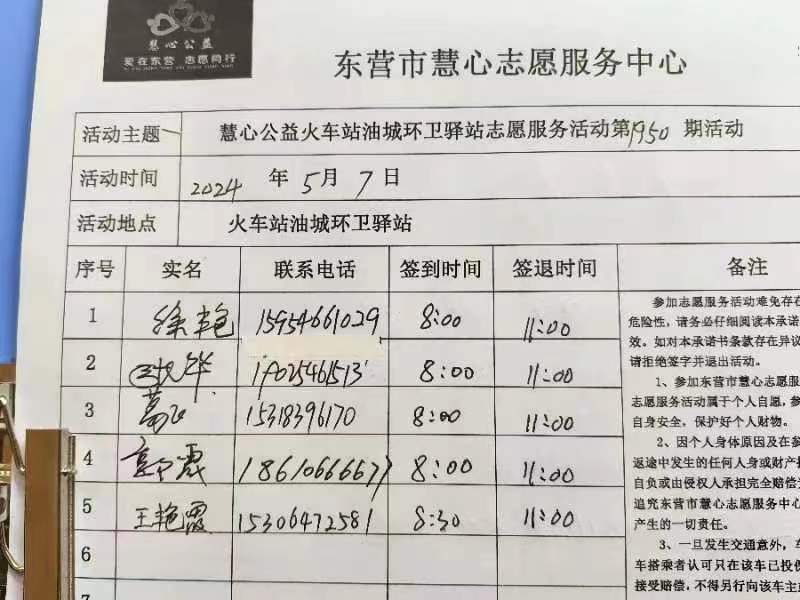 慧心公益
爱在东营 志愿同行
东营市慧心志愿服务中心
活动主题 慧心公益火车站油城环卫驿站志愿服务活动第1950期活动
活动时间 2024 年 5 月 7 日
活动地点 火车站油城环卫驿站
序号 实名 联系电话 签到时间 签退时间 备注
1 徐艳 15954661029 8:00 11:00
2 8:00 11:00
3 15318396170 8:00 11:00
4 霞 18610666677 8:00 11:00
5 王艳霞 15306472581 8:30 11:00
6
7
参加志愿服务活动难免存在
危险性，请务必仔细阅读本承诺
效。如对本承诺书条款存在异议
请拒绝签字并退出活动。
1、参加东营市慧心志愿服
志愿服务活动属于个人自愿，参
自身安全，保护好个人财物。
2、因个人身体原因及在参
返途中发生的任何人身或财产损
自负或由侵权人承担完全赔偿责
追究东营市慧心志愿服务中心
产生的一切责任。
3、一旦发生交通意外，车
车搭乘者认可只在该车已投保
接受赔偿，不得另行向该车主